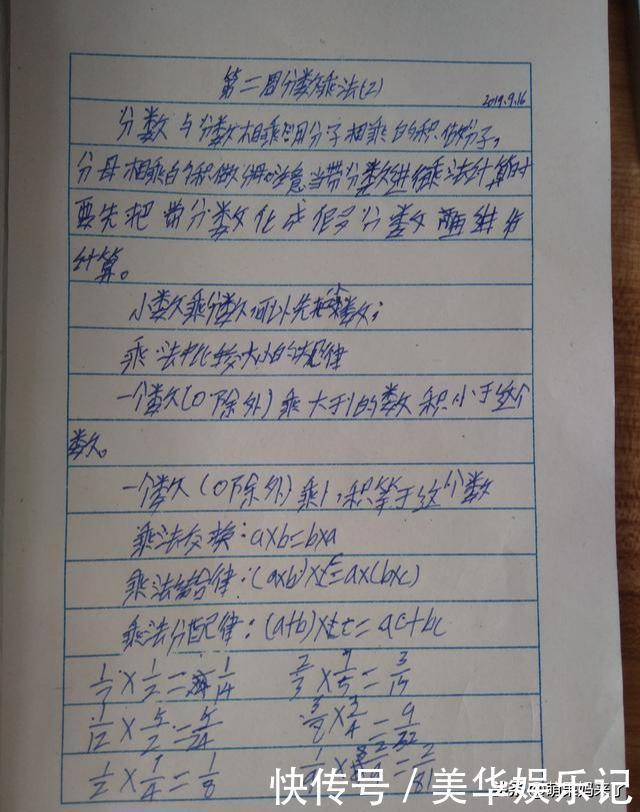 第二周分数乘法(2)
2019.9.16
分数与分数相乘用分子相乘的积做分子,
分母相乘的积做分母注意当带分数进行乘法计算时
要先把带分数化成假分数再进行
计算。
小数乘分数可以先把数;
乘法中比较大小的规律
一个数(0除外)乘大于1的数积小于这个
数。
一个数(0除外)乘1,积等于这个数
乘法交换:a×b=b×a
乘法结合律:(a×b)×c=a×(b×c)
乘法分配律:(a+b)×c=ac+bc
1/7×1/2=1/14 2/3×1/5=3/15
1/12×5/2=5/24 3/8×3/4=9/32
1/2×1/4=1/8
快传号/美华娱乐记
头条@萌果妈来了